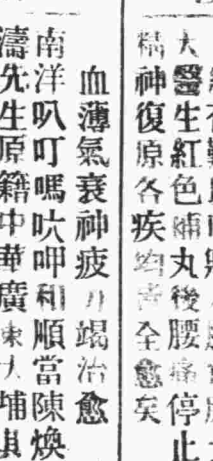 大醫生紅色補丸後腰痛停止
精神復原各疾均告全愈矣
血薄氣衰神疲力竭治愈
南洋叭叮嗎吙呷和順當陳煥
濤先生原籍中華廣東大埔具